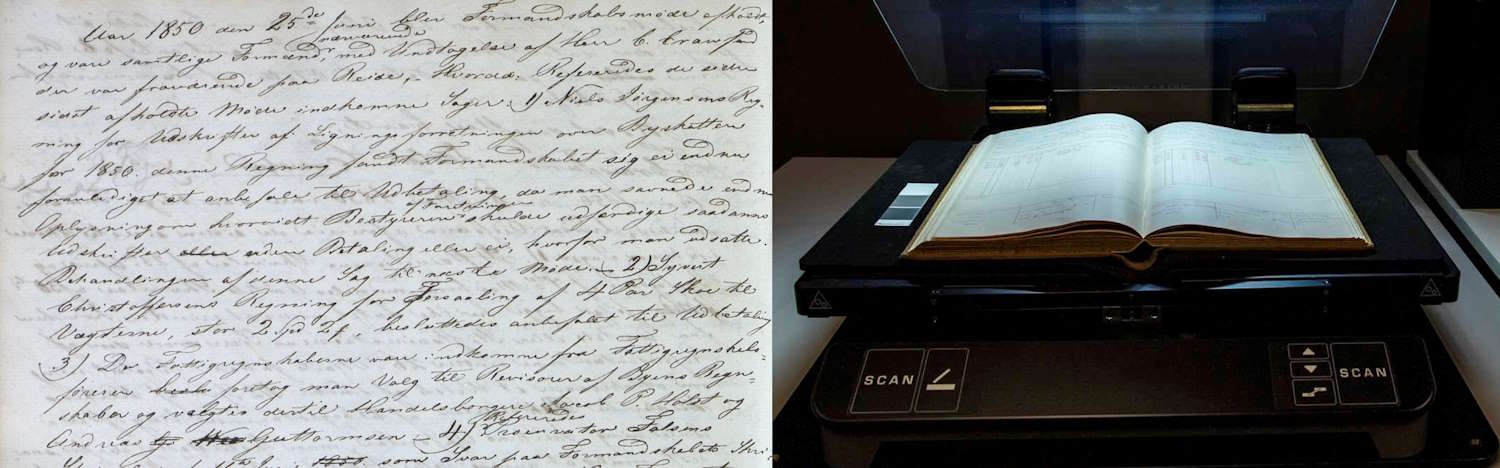 Aar 1850 den 25de Juni blev Formandskabsmøde afholdt,
nærværende
og vare samtlige Formænd, med Undtagelse af Herr C. Crawfurd
der var fraværende paa Reise, – Hvorda: Refereredes de siden
sidst afholdte Møde indkomne Sager: 1) Niels Jørgensens Reg,
ning for Udskrifter af Ligningsforretningen over Byskatten
for 1850. denne Regning fandt Formandskabet sig ei endnu
foranlediget at anbefale til Udbetaling, da man savnede endnu
af Forretningen
Oplysning om hvorvidt Bestyreren skulde udfærdige saadanne
Udskrifter eller uden Betaling eller ei, hvorfor man udsatte
Behandlingen af denne Sag til næste Møde. – 2) Syvert
Christoffersens Regning for Forsaaling af 4 Par Skoe til
Vægterne, stor 2 Spd 2 f, besluttedes anbefalet til Udbetaling
3) Da Fattigregnskaberne vare indkomne fra Fattigregnskabs-
føreren foretog man Valg til Revisorer af Byens Regn-
skaber og valgtes dertil Handelsborgerne Jacob P. Holst og
Refereredes
Andreas Guttormsen – 4) Procurator Falsens
1850. som Svar paa Formandskabets Skri-
SCAN
SCAN